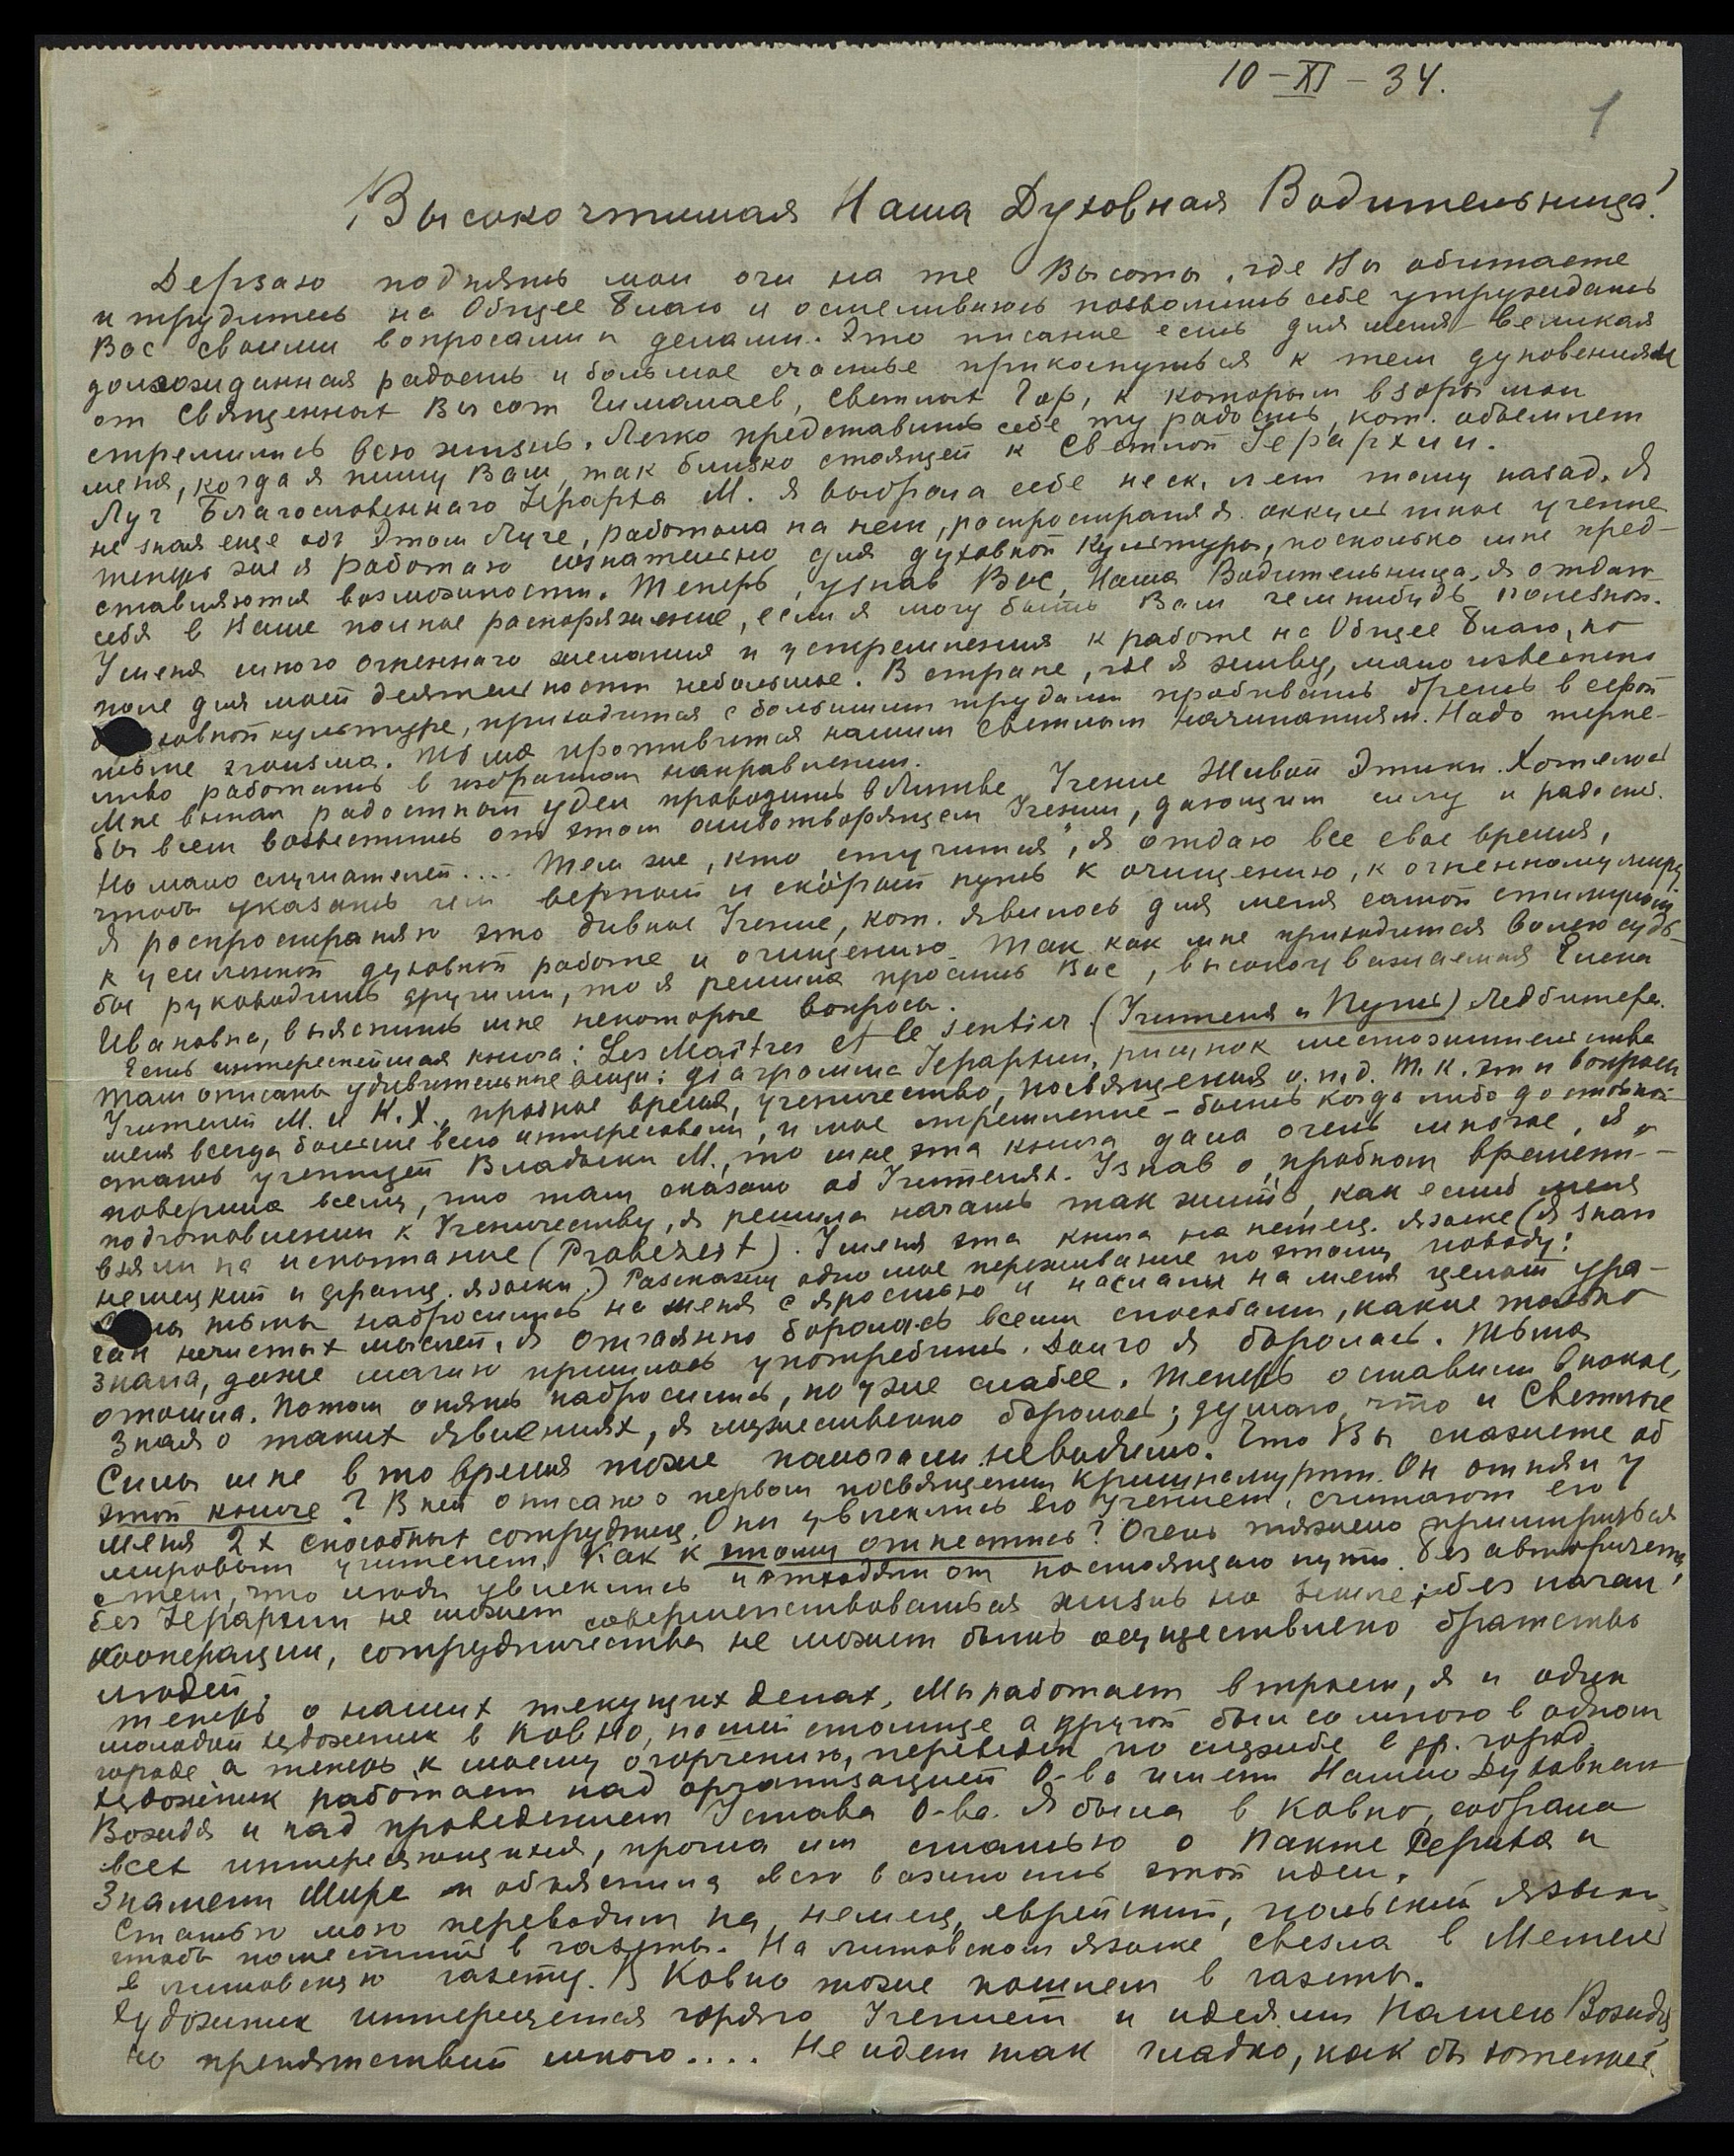 10 – XI – 34.
1
Высокочтимая Наша Духовная Водительница!
Дерзаю поднять мои очи на те Высоты, где Вы обитаете
и трудитесь на Общее Благо и осмеливаюсь позволить себе утруждать
Вас своими вопросами и делами. Это писание есть для меня – великая
долгожданная радость и большое счастье прикоснуться к тем дуновениям
от Священных Высот Гималаев, Светлых Гор, к которым взоры мои
стремились всю жизнь. Легко представить себе ту радость, кот. объемлет
меня, когда я пишу Вам, так близко стоящей к Светлой Іерархии.
Луч Благословеннаго Іерарха М. я выбрала себе неск. лет тому назад. Я
не зная еще об Этом Луче, работала на нем, распространяя оккультное учение
теперь же я работаю сознательно для духовной Культуры, поскольку мне пред-
ставляются возможности. Теперь, узнав Вас, Наша Водительница, я отдаю
себя в Ваше полное распоряжение, если я могу быть Вам чем нибудь полезной.
У меня много огненнаго желания и устремления к работе на Общее Благо, но
поле для моей деятельности небольшое. В стране, где я живу, мало известно
о духовной культуре, приходится с большим трудом пробивать брешь в серой
тьме эгоизма. Тьма противится нашим светлым начинаниям. Надо терпе-
ливо работать в избранном направлении.
Мне выпал радостный удел проводить в Литве Учение Живой Этики. Хотелось
бы всем возвестить об этом животворящем Учении, дающим силу и радость.
Но мало слушателей.... Тем же, кто "стучится", я отдаю все свое время,
чтобы указать им верный и скорый путь к очищению, к огненному миру
Я распространяю это дивное Учение, кот. явилось для меня самой стимулом
к усиленной духовной работе и очищению. Так как мне приходится волею судь-
бы руководить другими, то я решила просить Вас, высокоуважаемая Елена
Ивановна, выяснить мне некоторые вопросы.
Есть интереснейшая книга: Les Maîtres et le sentier (Учителя и Путь) Ледбитера.
Там описаны удивительные вещи: діаграмма Іерархии, рисунок местожительства
Учителей М. и К.Х., пробное время, ученичество, посвящения и.т.д. Т.к. эти вопросы
меня всегда больше всего интересовали, и мое стремление – быть когда либо достойной
стать ученицей Владыки М., то мне эта книга дала очень многое, я
поверила всему, что там сказано об Учителях. Узнав о "пробном времени" –
подготовлении к Ученичеству, я решила начать так жить, как если б меня
взяли на испытание (Probezeit). У меня эта книга на немец. языке (я знаю
немецкий и франц. языки) Расскажу одно мое переживание по этому поводу:
Силы тьмы набросились на меня с яростью и наслали на меня целый ура-
ган нечистых мыслей, я отчаянно боролась всеми способами, какие только
знала, даже магию пришлось употребить. Долго я боролась. Тьма
отошла. Потом опять набросились, но уже слабее. Теперь оставили в покое,
Зная о таких явлениях, я мужественно боролась; думаю, что и Светлые
Силы мне в то время тоже помогали невидимо. Что Вы скажете об
этой книге? В ней описано о первом посвящении Кришнамурти. Он отнял у
меня 2х способных сотрудниц. Они увлеклись его Учением, считают его
мировым учителем. Как к этому отнестись? Очень тяжело примириться
с тем, что люди увлеклись и отходят от настоящаго пути. Без авторитета,
без Іерархии не может совершенствоваться жизнь на Земле; без начал
кооперации, сотрудничества не может быть осуществлено братство
людей.
Теперь о наших текущих делах. Мы работаем втроем, я и один
молодой художник в Ковно, нашей столице а другой был со мною в одном
городе а теперь к моему огорчению, переведен по службе в др. город.
Художник работает над организацией О-ва имени Нашего Духовнаго
Вождя и над проведением Устава О-ва. Я была в Ковно, собрала
всех интересующихся, прочла им статью о Пакте Рериха и
Знамени Мира и объяснила всю важность этой идеи.
Статью мою переводим на немец, еврейский, польский языки
чтобы поместить в газеты. На литовском языке свезла в Мемель
в литовскую газету. В Ковно тоже пошлем в газеты.
Художник интересуется горячо Учением и идеями Нашего Вождя,
но препятствий много.... Не идет так гладко, как бы хотелось,